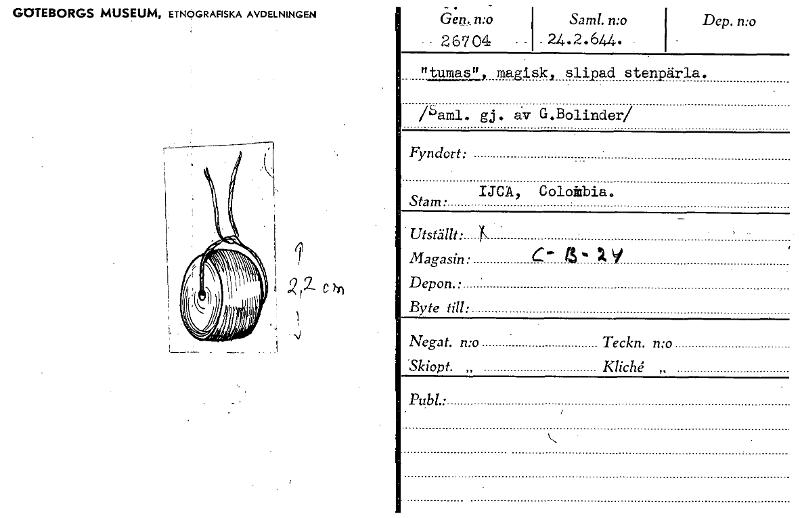 GÖTEBORGS MUSEUM, ETNOGRAFISKA AVDELNINGEN
2,2 cm
Gen. n:o Saml. n:o Dep. n:o
26704 24.2.644.
"tumas", magisk, slipad stenpärla.
/Saml. gj. av G.Bolinder/
Fyndort:
Stam: IJCA, Colombia.
Utställt: X
Magasin: C-B-24
Depon.:
Byte till:
Negat. n:o Teckn. n:o
Skiopt. „ Kliché „
Publ.: